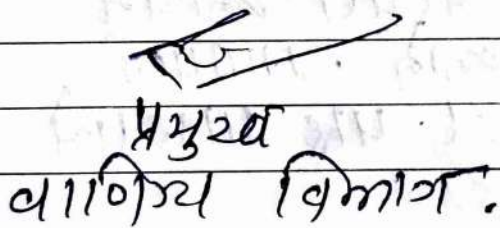 प्रमुख
वाणिज्य विभाग.